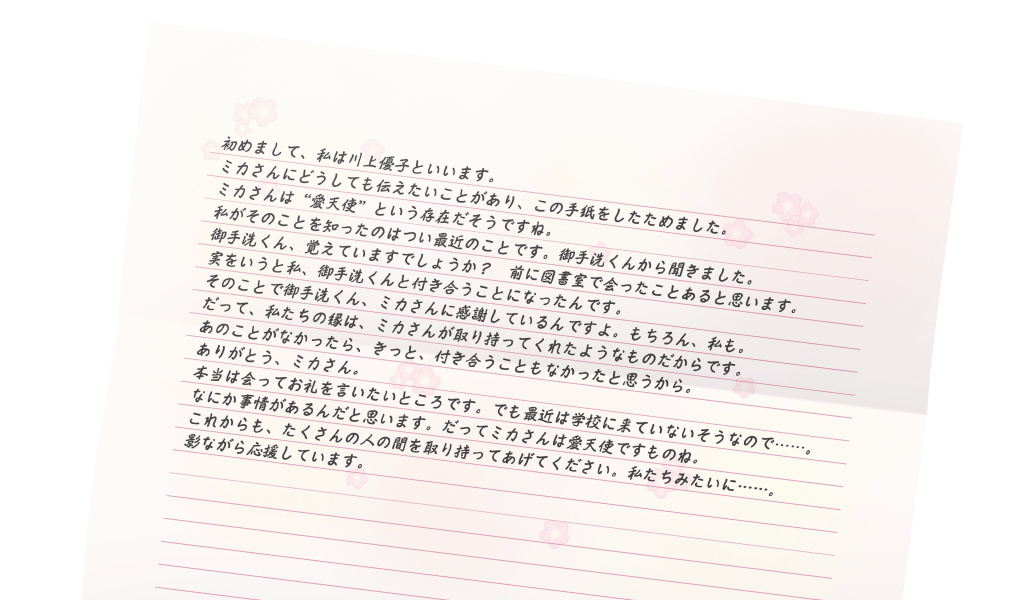 初めまして、私は川上優子といいます。
ミカさんにどうしても伝えたいことがあり、この手紙をしたためました。
ミカさんは“愛天使”という存在だそうですね。
私がそのことを知ったのはつい最近のことです。御手洗くんから聞きました。
御手洗くん、覚えていますでしょうか？　前に図書室で会ったことあると思います。
実をいうと私、御手洗くんと付き合うことになったんです。
そのことで御手洗くん、ミカさんに感謝しているんですよ。もちろん、私も。
だって、私たちの縁は、ミカさんが取り持ってくれたようなものだからです。
あのことがなかったら、きっと、付き合うこともなかったと思うから。
ありがとう、ミカさん。
本当は会ってお礼を言いたいところです。でも最近は学校に来ていないそうなので……。
なにか事情があるんだと思います。だってミカさんは愛天使ですものね。
これからも、たくさんの人の間を取り持ってあげてください。私たちみたいに……。
影ながら応援しています。